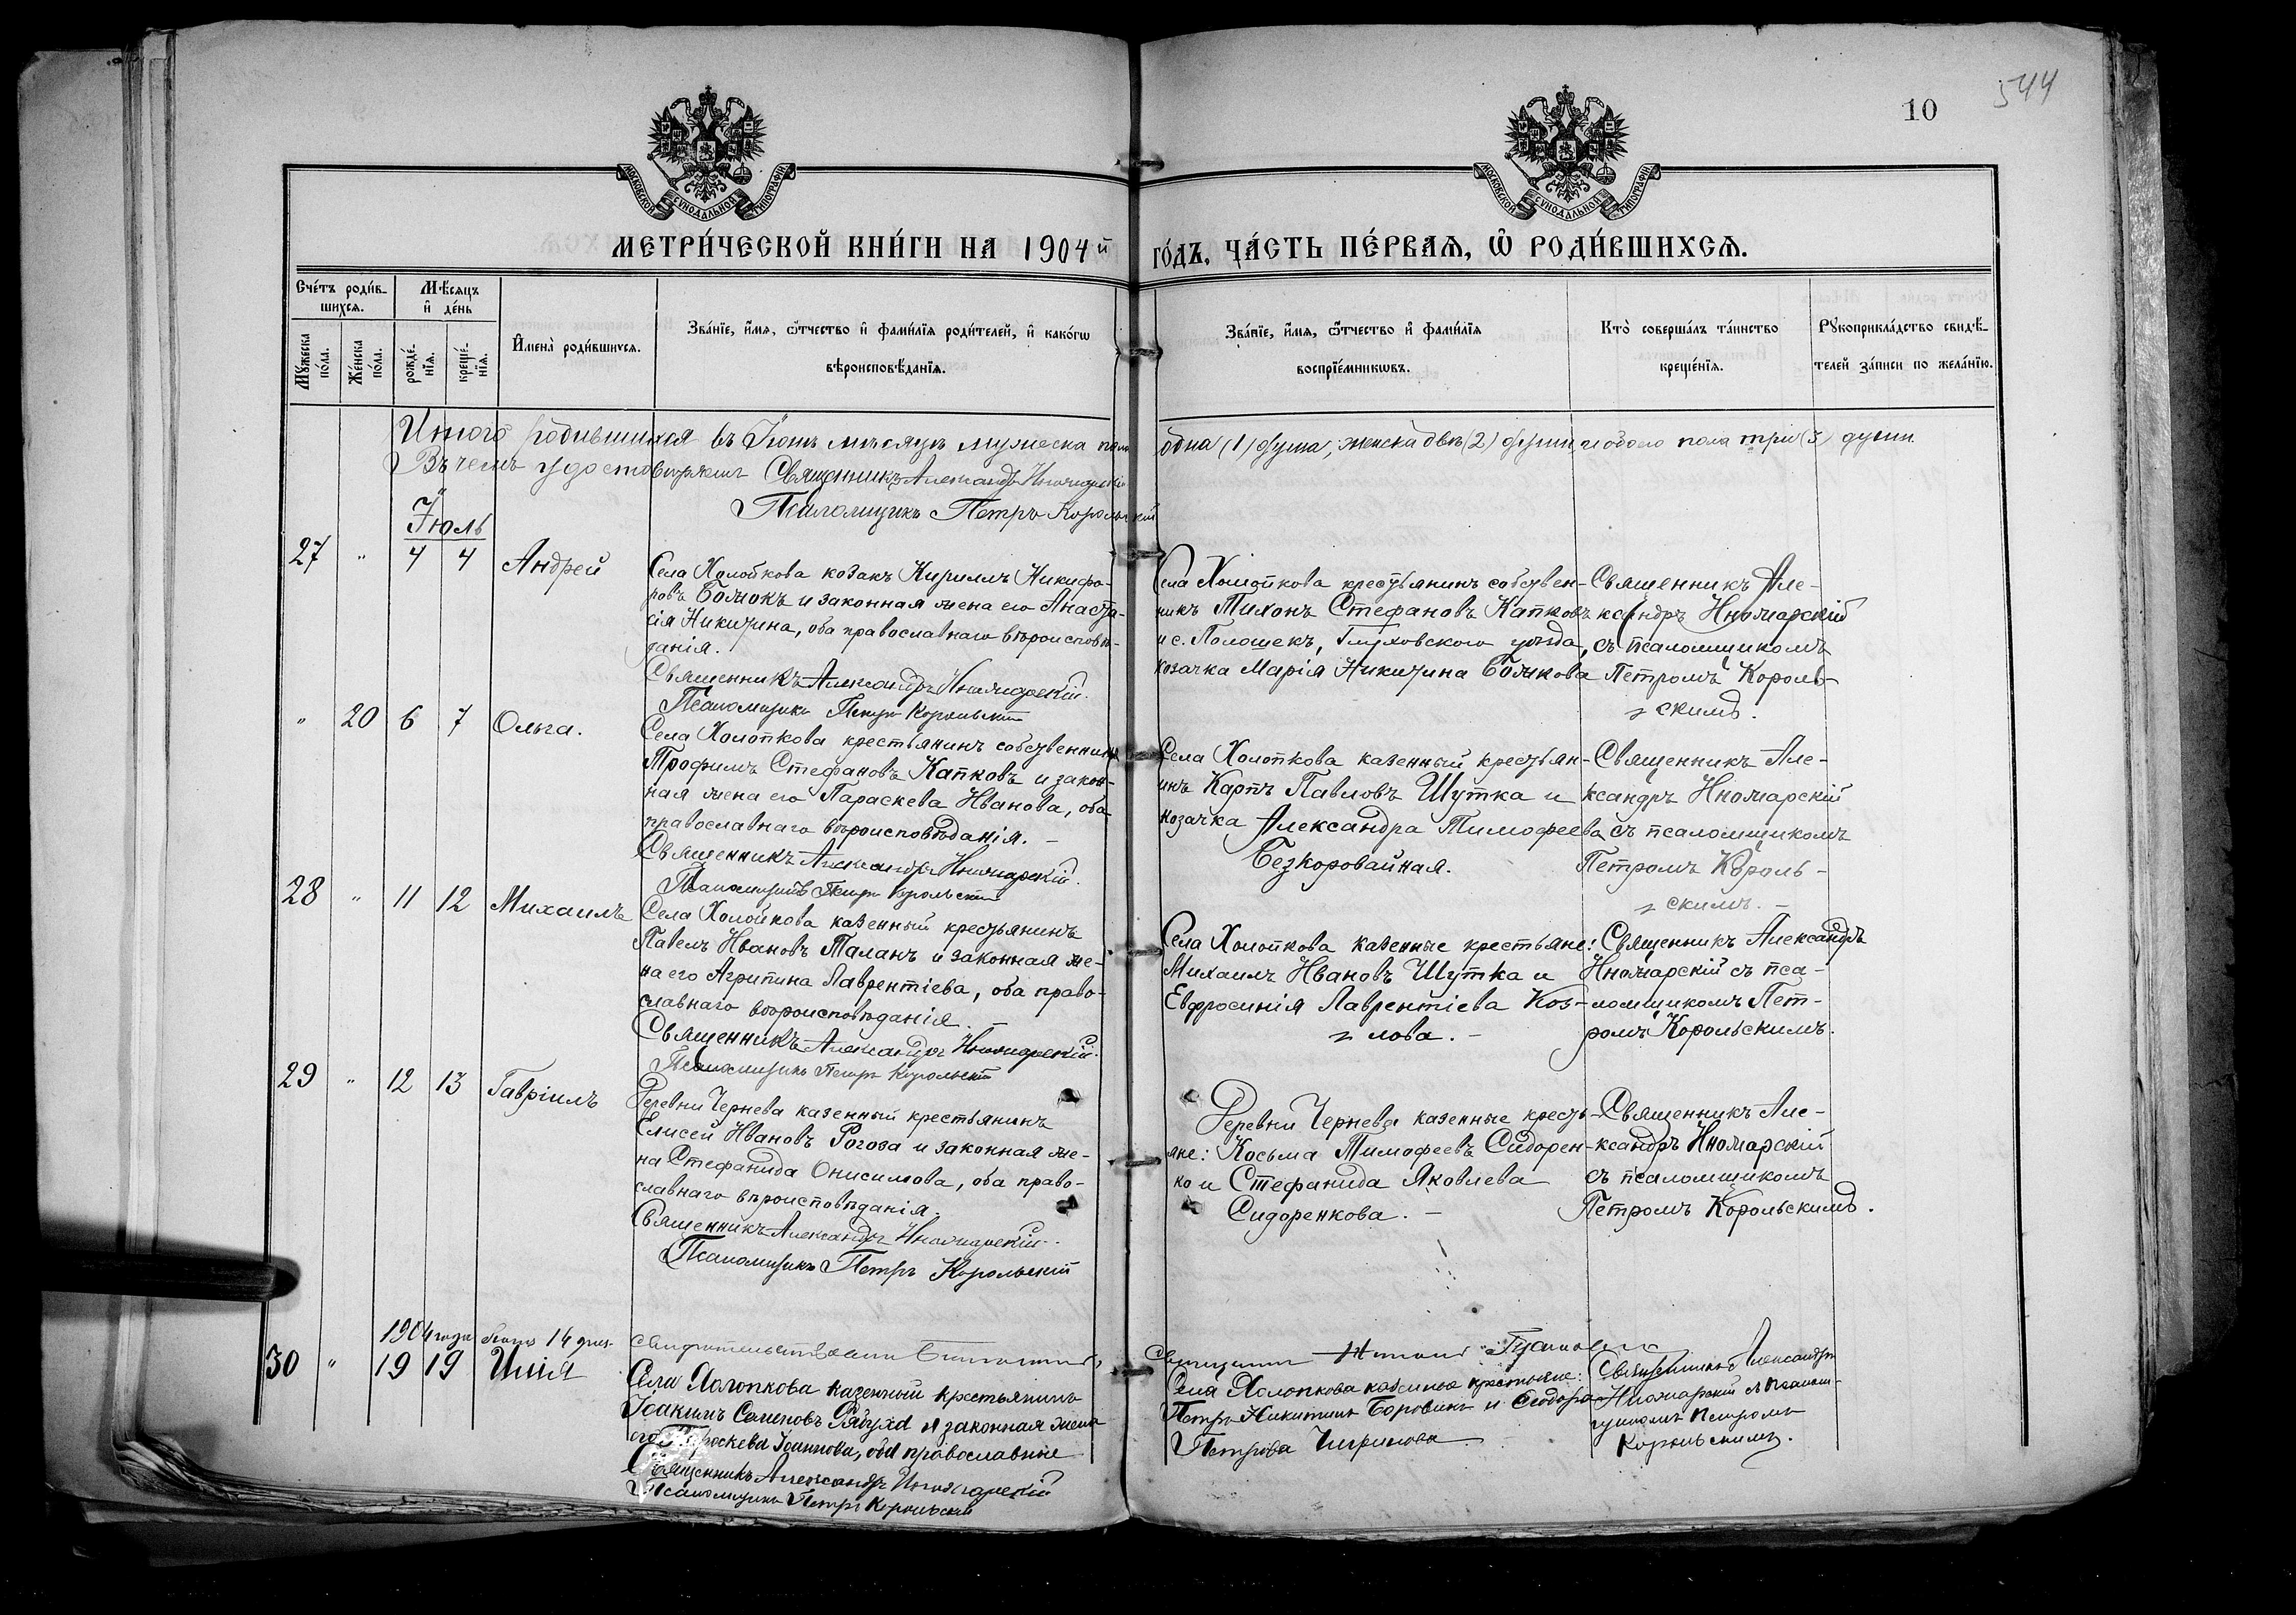 544
10
МОСКОВСКОЙ СѴНОДАЛЬНОЙ ТИПОГРАФІИ
МОСКОВСКОЙ СѴНОДАЛЬНОЙ ТИПОГРАФІИ
МЕТРИ́ЧЕСКОЙ КНИ́ГИ НА 1904й
ГО́ДЪ, ЧА́СТЬ ПЕ́РВАѦ, Ѡ҆ РОДИ́ВШИХСѦ.
Сче́тъ роди́в-
шихсѧ.
Мѣ́сѧцъ
и҆ де́нь
Мꙋ́жеска
по́ла.
Же́нска
по́ла.
рожде́-
нїѧ.
креще́-
нїѧ.
И҆мена̀ роди́вшихсѧ.
Зва́нїе, и҆́мѧ, ѻ҆́тчество и҆ фами́лїѧ роди́телей, и҆ како́гѡ
вѣроисповѣ́данїѧ.
Зва́нїе, и҆́мѧ, ѻ҆́тчество и҆ фами́лїѧ
воспрїе́мникѡвъ.
Кто̀ соверша́лъ та́инство
креще́нїѧ.
Рꙋкоприкла́дство свидѣ́-
телей за́писи по жела́нїю.
Итого родившихся въ Іюнѣ мѣсяцѣ мужеска пола
одна (1) душа, женска двѣ (2) души, и обоего пола три (3) души
Въ чемъ удостовѣряемъ Священникъ Александръ Иножарскій
Псаломщикъ Петръ Корольскій
Іюль
27 " 4 4 Андрей
Села Холопкова козакъ Кириллъ Никифо-
ровъ Божокъ и законная жена его Анаста-
сія Никитина, оба православнаго вѣроисповѣ-
данія.
Священникъ Александръ Иножарскій.
Псаломщикъ Петръ Корольскій
Села Холопкова крестьянинъ собствен-
никъ Тихонъ Стефановъ Капковъ
и с. Полошекъ, Глуховского уѣзда,
козачка Марія Никитина Божкова
Священникъ Але-
ксандръ Иножарскій
съ псаломщикомъ
Петромъ Король-
скимъ.
" 20 6 7 Ольга.
Села Холопкова крестьянинъ собственникъ
Трофимъ Стефановъ Капковъ и закон-
ная жена его Параскева Иванова, оба
православнаго вѣроисповѣданія. –
Священникъ Александръ Иножарскій.
Псаломщикъ Петръ Корольскій
Села Холопкова казенный крестьян-
инъ Карпъ Павловъ Шутка и
козачка Александра Тимофеева
Безкоровайная.
Священникъ Але-
ксандръ Иножарскій
съ псаломщикомъ
Петромъ Король-
скимъ. –
28 " 11 12 Михаилъ
Села Холопкова казенный крестьянинъ
Павелъ Ивановъ Таланъ и законная же-
на его Агрипина Лаврентіева, оба право-
славнаго вѣроисповѣданія. –
Священникъ Александръ Иножарскій.
Псаломщикъ Петръ Корольскій
Села Холопкова казенные крестьяне:
Михаилъ Ивановъ Шутка и
Евфросинія Лаврентіева Коз-
лова. –
Священникъ Александръ
Иножарскій съ пса-
ломщикомъ Пет-
ромъ Корольскимъ.
29 " 12 13 Гавріилъ
Деревни Чернева казенный крестьянинъ
Елисей Ивановъ Рогоза и законная же-
на Стефанида Онисимова, оба право-
славнаго вѣроисповѣданія.
Священникъ Александръ Иножарскій.
Псаломщикъ Петръ Корольскій
Деревни Чернева казенные кресть-
яне: Косьма Тимофеевъ Сидорен-
ко и Стефанида Яковлева
Сидоренкова. –
Священникъ Але-
ксандръ Иножарскій
съ псаломщикомъ
Петромъ Корольскимъ.
1904 года 14 дня
30 " 19 19 Илія
Села Холопкова казенный крестьянинъ
Іоакимъ Семеновъ Рябуха и законная жена
его Параскева Іоаннова, оба православные
Священникъ Александръ Иножарскій
Псаломщикъ Петръ Корольскій
Села Холопкова казенные крестьяне:
Петръ Никитинъ Боровикъ и Ѳеодора
Петрова
Священникъ Александръ
Иножарскій съ псалом-
щикомъ Петромъ
Корольскимъ.